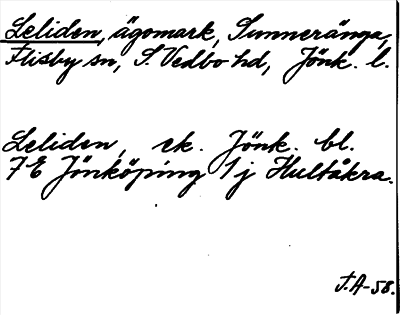 Leliden, ägomark, Sunneränga,
Flisby sn, S. Vedbo hd, Jönk. l.
Leliden, ek. Jönk. bl.
7 E Jönköping 1 j Hultåkra.
J.A-58.